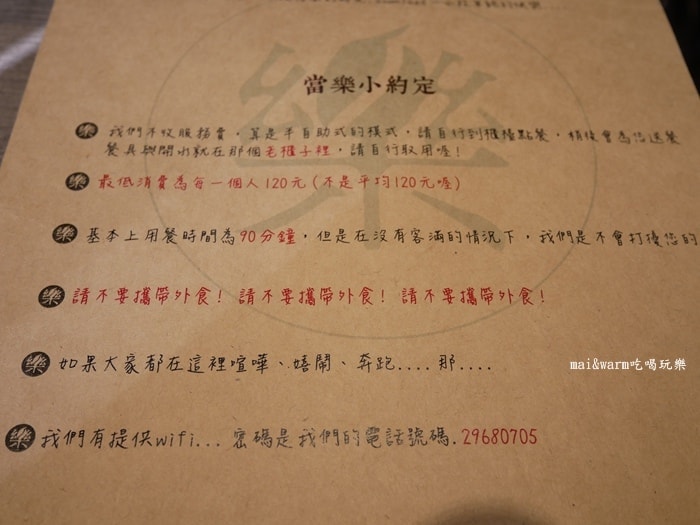 當樂小約定
樂 我們不收服務費，算是半自助式的模式，請自行到櫃檯點餐，稍後會為您送餐
餐具與開水就在那個老櫃子裡，請自行取用喔！
樂 最低消費為每一個人120元(不是平均120元喔)
樂 基本上用餐時間為90分鐘，但是在沒有客滿的情況下，我們是不會打擾您的
樂 請不要攜帶外食！請不要攜帶外食！請不要攜帶外食！
樂 如果大家都在這裡喧嘩、嬉鬧、奔跑....那....
mai&warm吃喝玩樂
樂 我們有提供wifi... 密碼是我們的電話號碼.29680705
樂